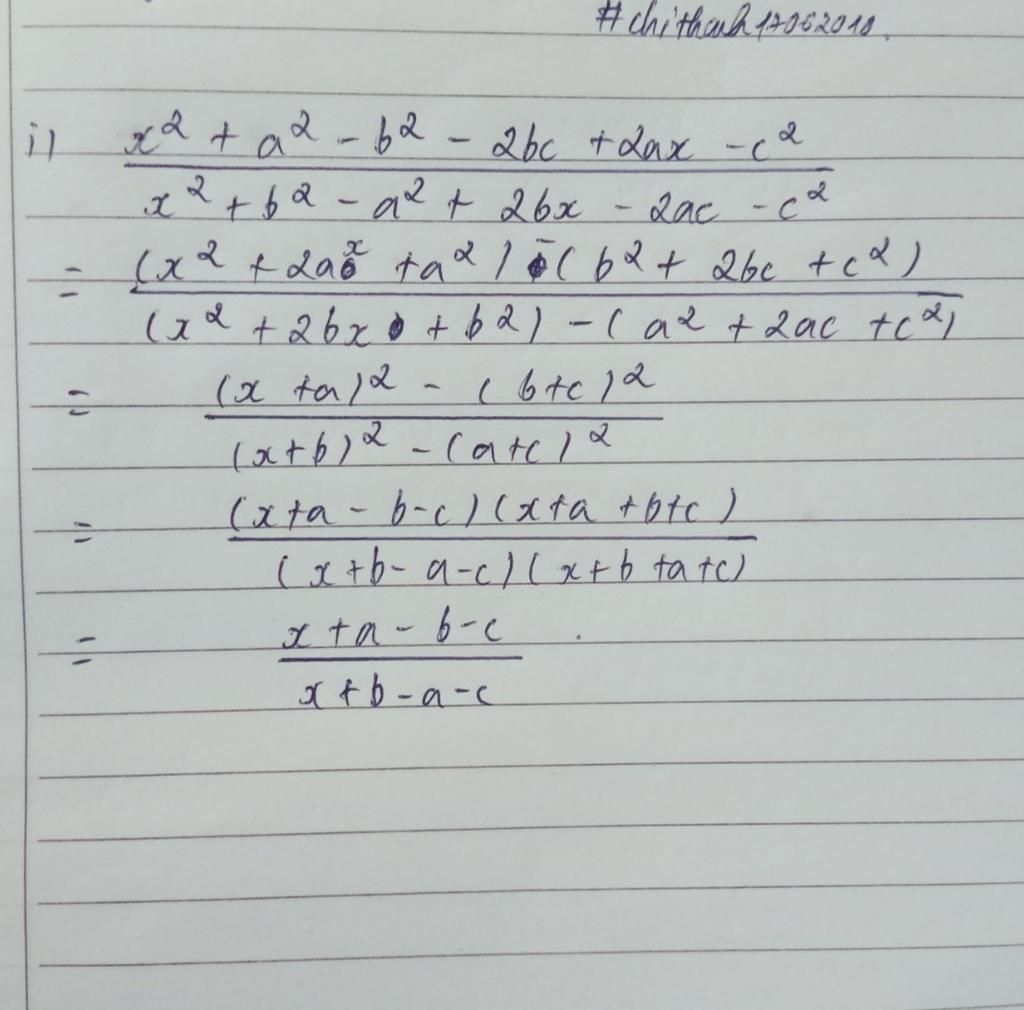 #chithanh17062010.
i) x² + a² - b² - 2bc + 2ax - c²
x² + b² - a² + 2bx - 2ac - c²
= (x² + 2ax + a²) - (b² + 2bc + c²)
(x² + 2bx + b²) - (a² + 2ac + c²)
= (x + a)² - (b + c)²
(x + b)² - (a + c)²
= (x + a - b - c)(x + a + b + c)
(x + b - a - c)(x + b + a + c)
= x + a - b - c
x + b - a - c